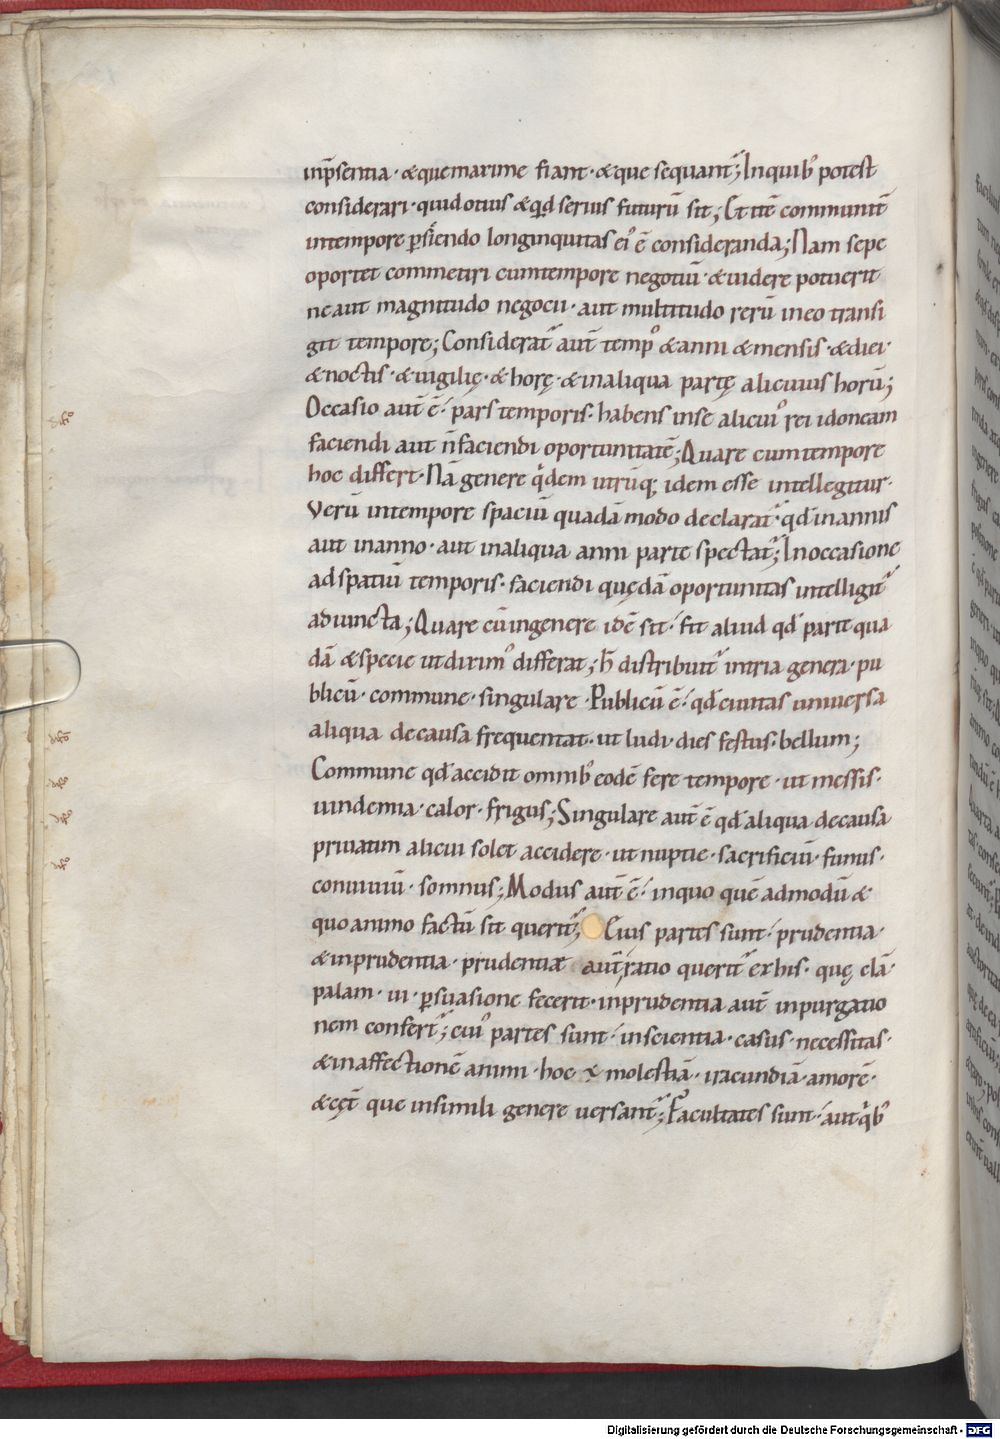 inp̄sentia · & que maxime fiant · & que sequant̃; In quib; potest
considerari · quid otius & qd̄ serius futurū sit; Et itē communit̄
in tempore p̱siciendo longinquitas ei᾽ ē consideranda; Nam sepe
oportet commetiri cum tempore negotiū · & uidere potuerit
ne aut magnitudo negocii · aut multitudo rerū in eo transi
git tempore; Considerat̃ aut̄ temp᾽ & anni & mensis · & diei ·
& noctis · & uigilię · & horę · & in aliqua partę alicuius horū;
Occasio aut̄ ē · pars temporis · habens in se alicui᾽ rei idoneam
faciendi aut n̄ faciendi oportunitatē; Quare cum tempore
hoc differt · Nā genere q̇dem utrūq; idem esse intellegitur ·
Verū in tempore spaciū quadā modo declarat̃ · qd̄ in annis
aut in anno · aut in aliqua anni parte spectat̃; In occasione
ad spatiū temporis · faciendi quędā oportunitas intelligit̃
adiuncta; Quare cū in genere idē sit · fit aliud qd̄ parte qua
dā & specie ut dixim᾽ differat; h̄ distribuit̃ in tria genera · pu
blicū · commune · singulare · Publicū ē · qd̄ ciuitas uniuersa
aliqua de causa frequentat · ut ludi · dies festus · bellum;
Commune qd̄ accidit omnib; eodē fere tempore · ut messis ·
uindemia · calor · frigus; Singulare aut̄ ē qd̄ aliqua de causa
priuatim alicui solet accidere · ut nuptie · sacrificiū · funus ·
conuiuiū · somnus; Modus aut̄ ē · in quo quē admodū &
quo animo factū sit querit̃; Eius partes sunt · prudentia ·
& inprudentia · prudentiæ aut̄ ratio querit̃ ex his · quę clā ·
palam · ui · p̱suasione fecerit · inprudentia aut̄ in purgatio
nem confert̃; eiu᾽ partes sunt · inscientia · casus · necessitas ·
& in affectionē animi · hoc ē molestiā · iracundiā · amorē ·
& cęt̄ que in simili genere uersant̃; Facultates sunt · aut q̇b;
Digitalisierung gefördert durch die Deutsche Forschungsgemeinschaft - DFG